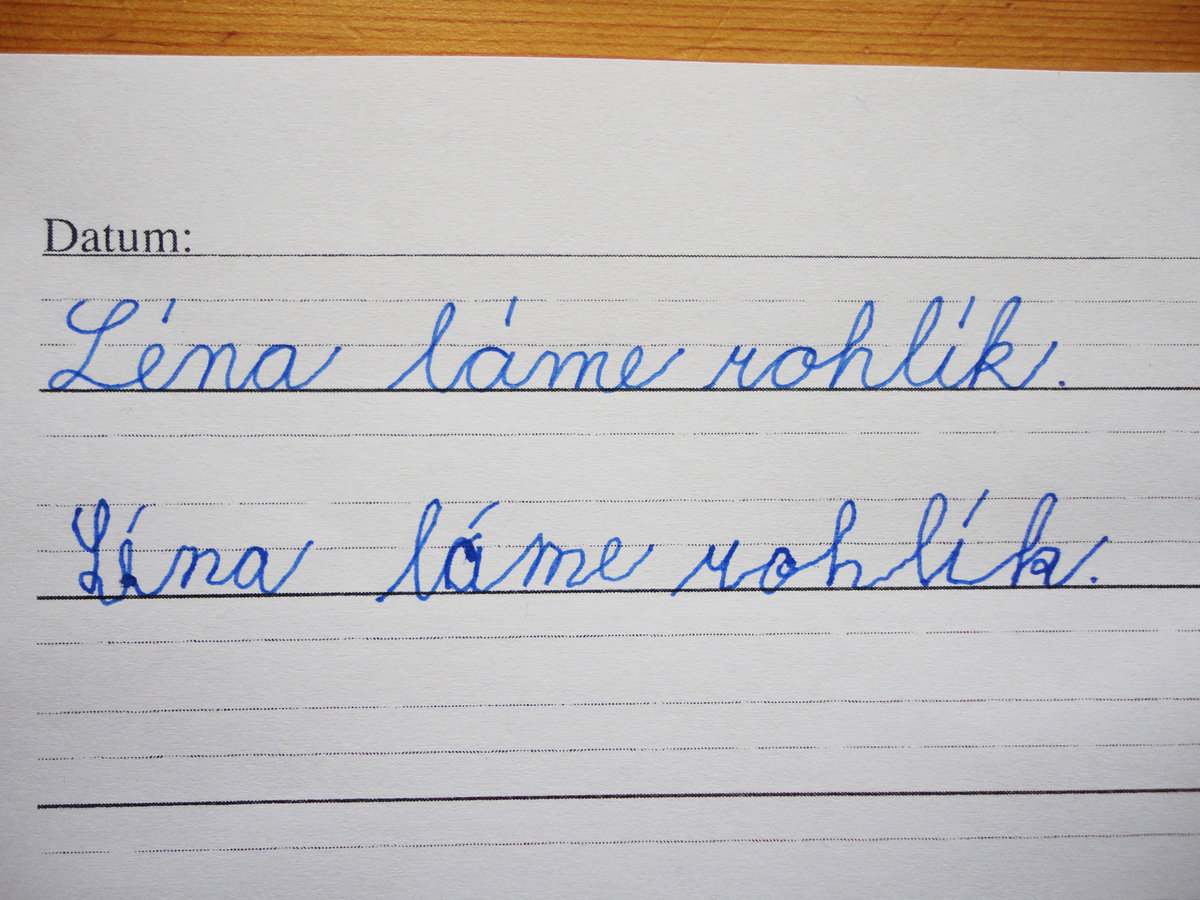 Datum:
Léna láme rohlík.
Léna láme rohlík.